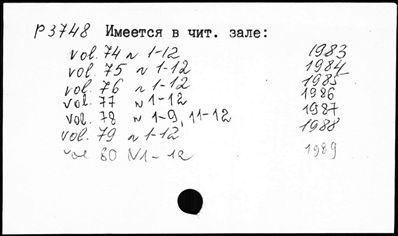 P3748 Имеется в чит. зале:
vol. 74 N 1-12 1983
vol. 75 N 1-12 1984
vol. 76 N 1-12 1985
vol. 77 N 1-12 1986
vol. 78 N 1-9, 11-12 1987
vol. 79 N 1-12 1988
vol 80 N 1-12 1989